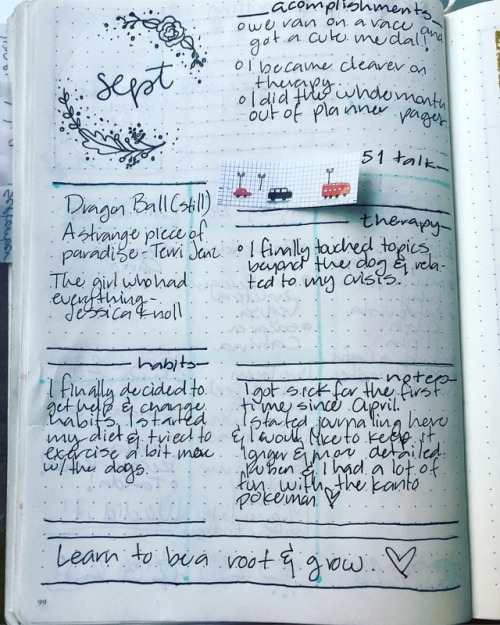 sept
acomplishments
o we ran on a race and
got a cute medal!
o I became clearer on
therapy
o I did the whole month
out of planner pages
51 talk
Dragon Ball (still)
A strange piece of
paradise - Terri Jenz
The girl who had
everything -
Jessica Knoll
therapy
o I finally touched topics
beyond the dog & rela-
ted to my crisis.
habits
I finally decided to
get help & change
habits. I started
my diet & tried to
exercise a bit more
w/ the dogs.
notes
I got sick for the first
time since April.
I started journaling here
& I would like to keep it
longer & more detailed.
Ruben & I had a lot of
fun with the kanto
pokemon
Learn to be a root & grow.
99